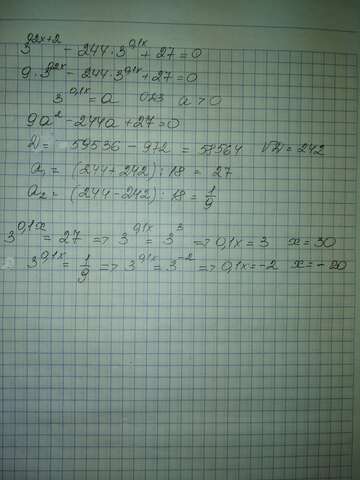 3^{0,2x+2} - 244·3^{0,1x} + 27 = 0
9·3^{0,2x} - 244·3^{0,1x} + 27 = 0
3^{0,1x} = a ОДЗ a > 0
9a² - 244a + 27 = 0
D = 59536 - 972 = 58564 √D = 242
a₁ = (244 + 242) : 18 = 27
a₂ = (244 - 242) : 18 = 1/9
3^{0,1x} = 27 => 3^{0,1x} = 3³ => 0,1x = 3 x = 30
3^{0,1x} = 1/9 => 3^{0,1x} = 3^{-2} => 0,1x = -2 x = -20